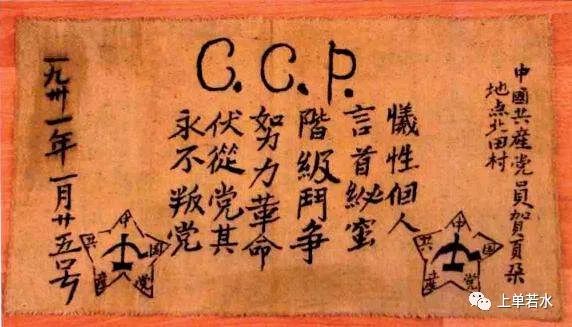 C.C.P.
中國共産党員賀頁朵
地点北田村
犧性個人
言首秘蜜
階級鬥争
努力革命
伏從党其
永不叛党
一九卅一年一月廿五号
中国共産党
中国共産党
上单若水